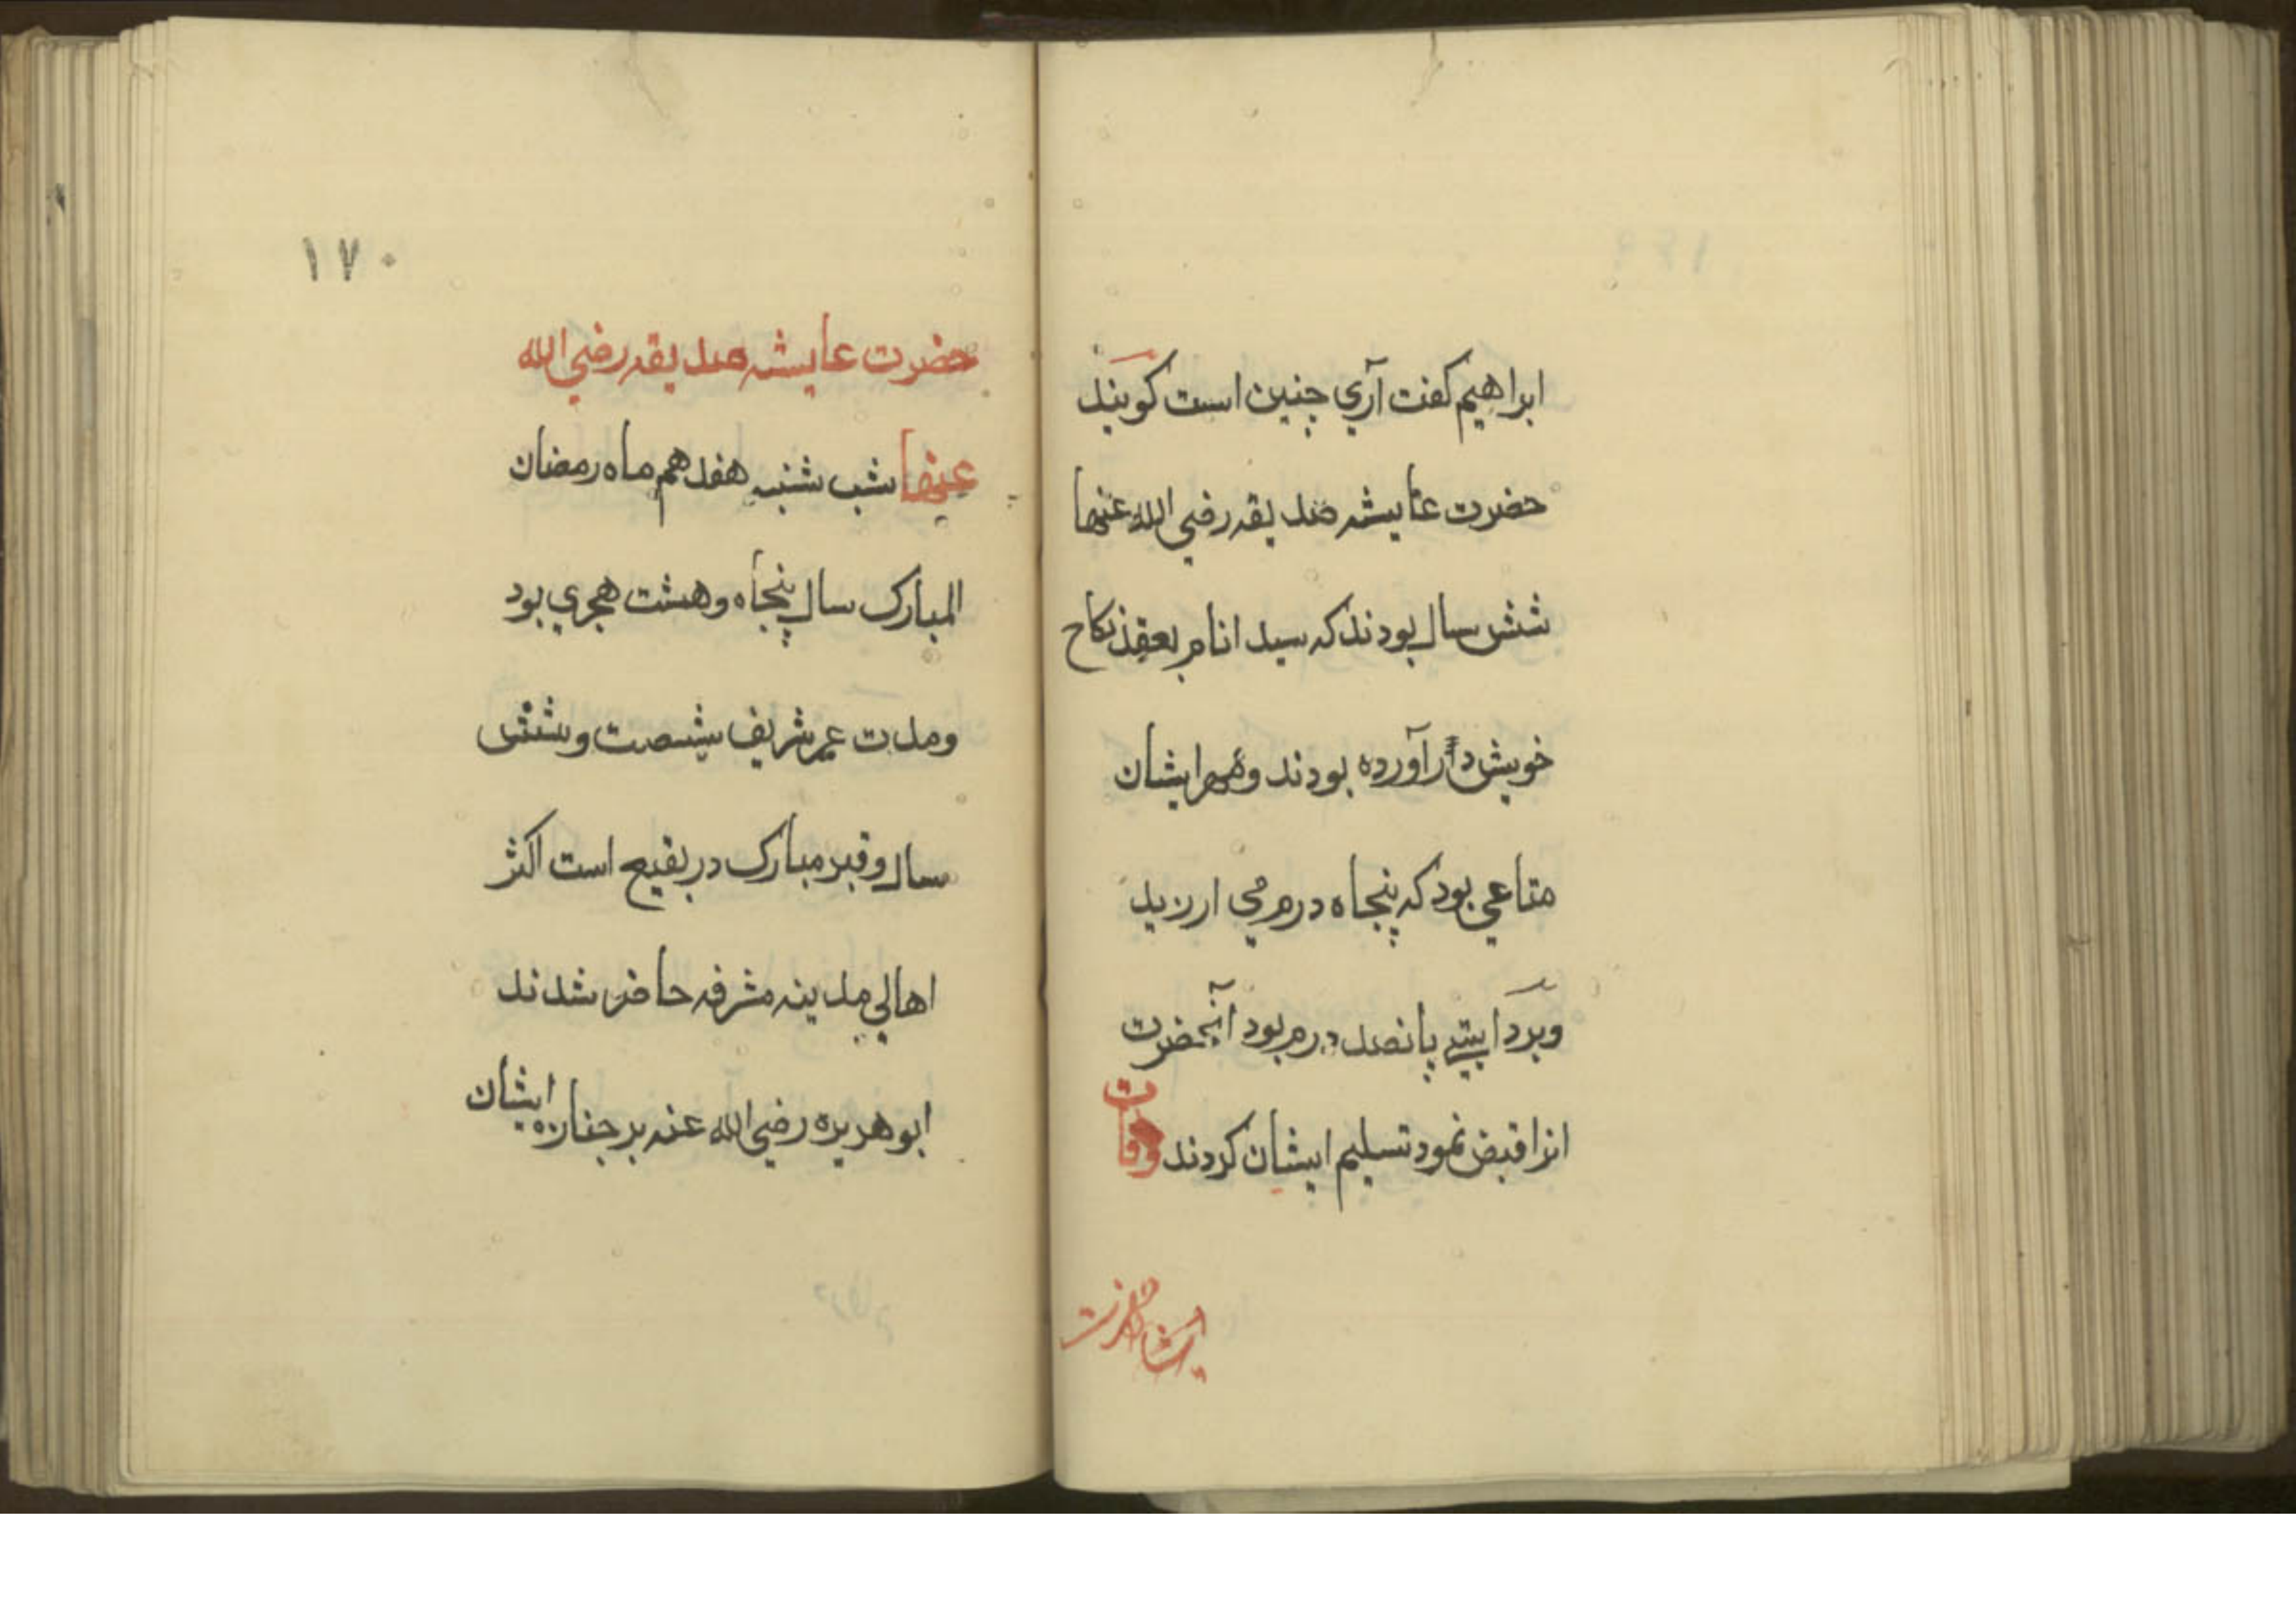 ابراهيم کفت آري چنين است کويند
حضرت عايشه صديقه رضي الله عنها
شش سال بودند که سيد انام بعقد نکاح
خويش در آورده بودند و مهر ايشان
متاعي بود که پنجاه درم مي ارزيد
وبروايتي پانصد درم بود آنحضرت
انرا قبض نمود تسليم ايشان کردند وفات
حضرت
١٧٠
حضرت عايشه صديقه رضي الله
عنها شب شنبه هفدهم ماه رمضان
المبارک سال پنجاه و هشت هجري بود
ومدت عمر شريف شصت و شش
سال وقبر مبارک در بقيع است اکثر
اهالي مدينه مشرفه حاضر شدند
ابوهريره رضي الله عنه بر جنازه ايشان